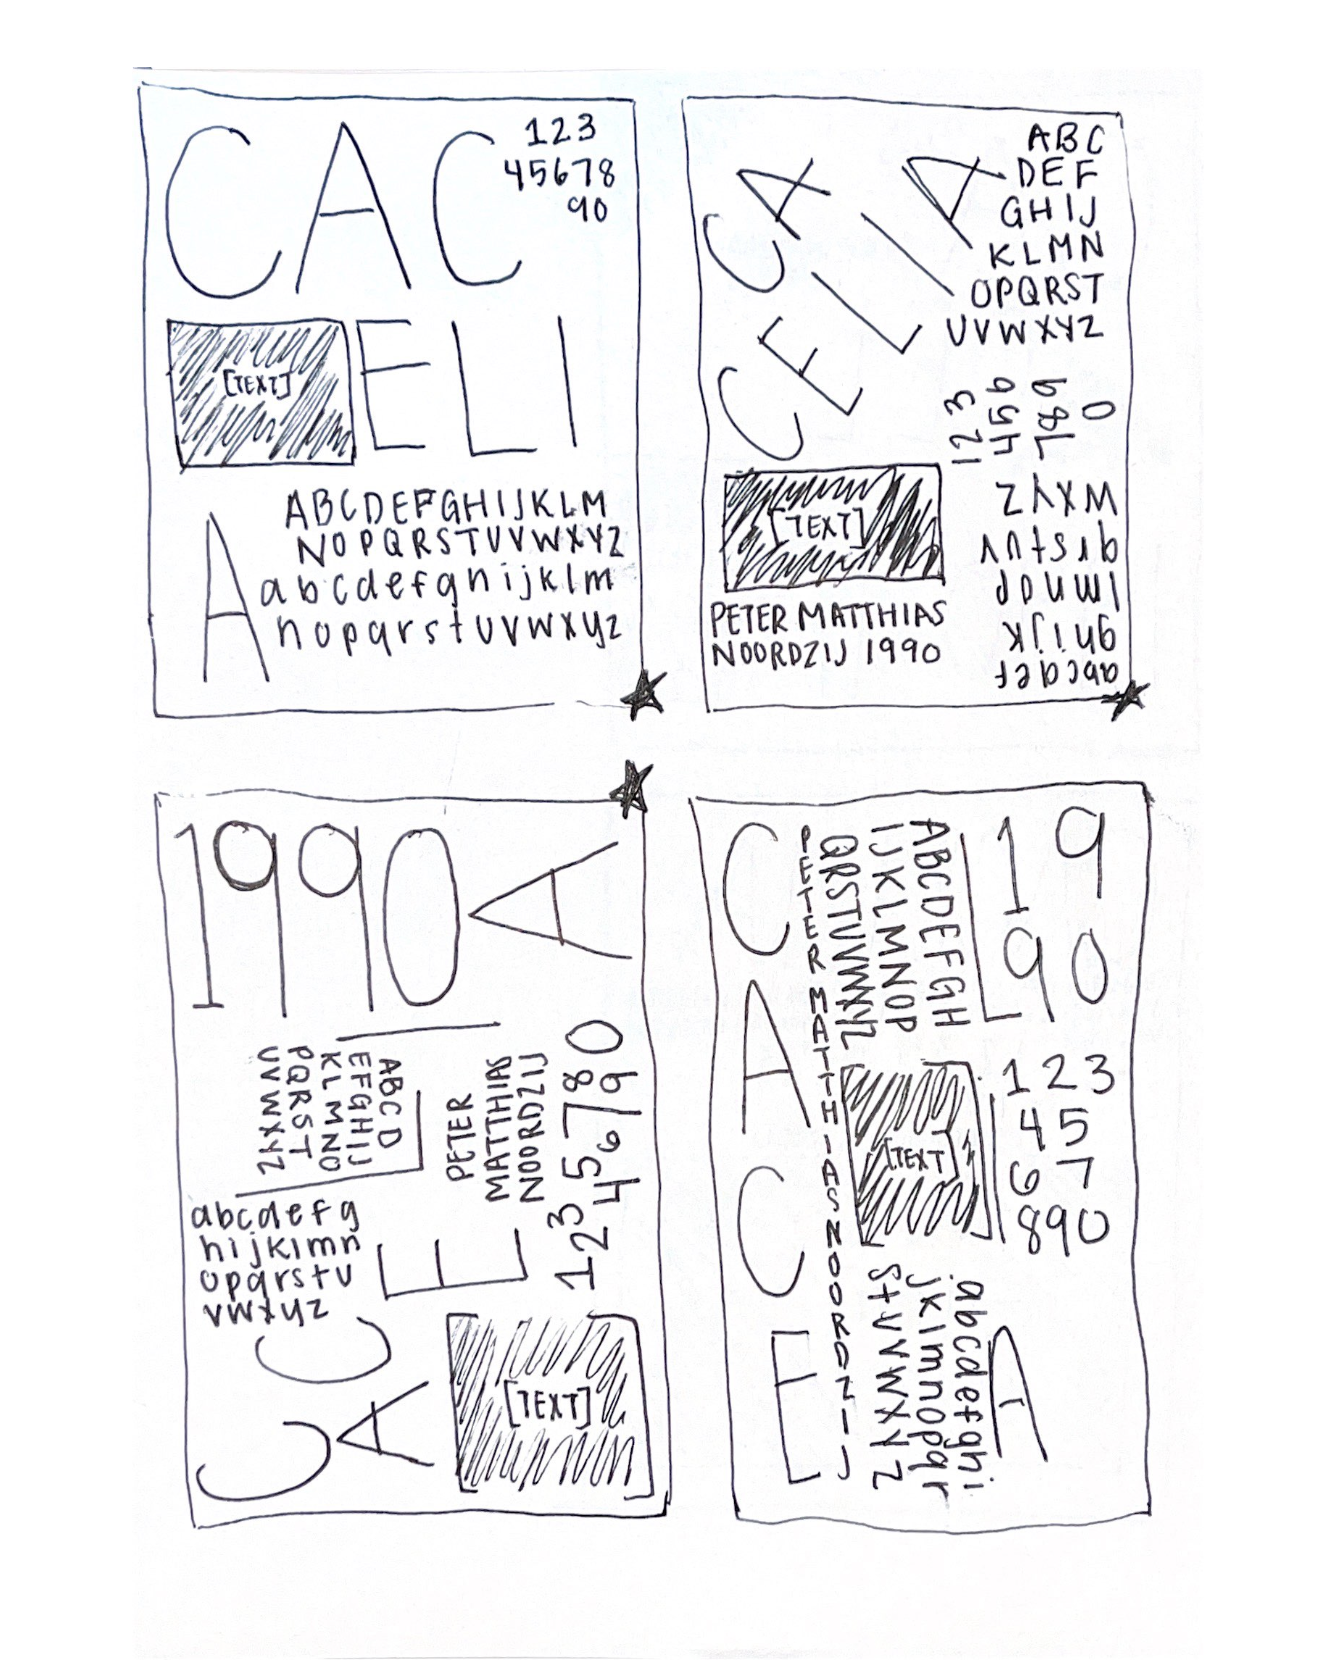 CAC
123
45678
90
[TEXT]
ELI
A
ABCDEFGHIJKLM
NOPQRSTUVWXYZ
abcdefghijklm
nopqrstuvwxyz
CA
CELIA
ABC
DEF
GHIJ
KLMN
OPQRST
UVWXYZ
123
456
789
0
[TEXT]
PETER MATTHIAS
NOORDZIJ 1990
abcdef
ghijk
lmnop
qrstuv
wxyz
1990
A
ABCD
EFGHIJ
KLMNO
PQRST
UVWXYZ
PETER
MATTHIAS
NOORDZIJ
1234567890
abcdefg
hijklmn
opqrstu
vwxyz
CAC
E
[TEXT]
CACE
PETER MATTHIAS NOORDZIJ
ABCDEFGH
IJKLMNOP
QRSTUVWXYZ
19
90
[TEXT]
123
45
67
890
abcdefghi
jklmnopqr
stuvwxyz
LI
A